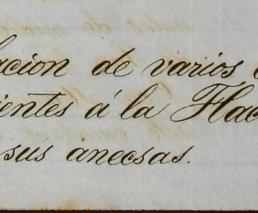 lacion de varios
ientes á la Hac
sus anecsas.